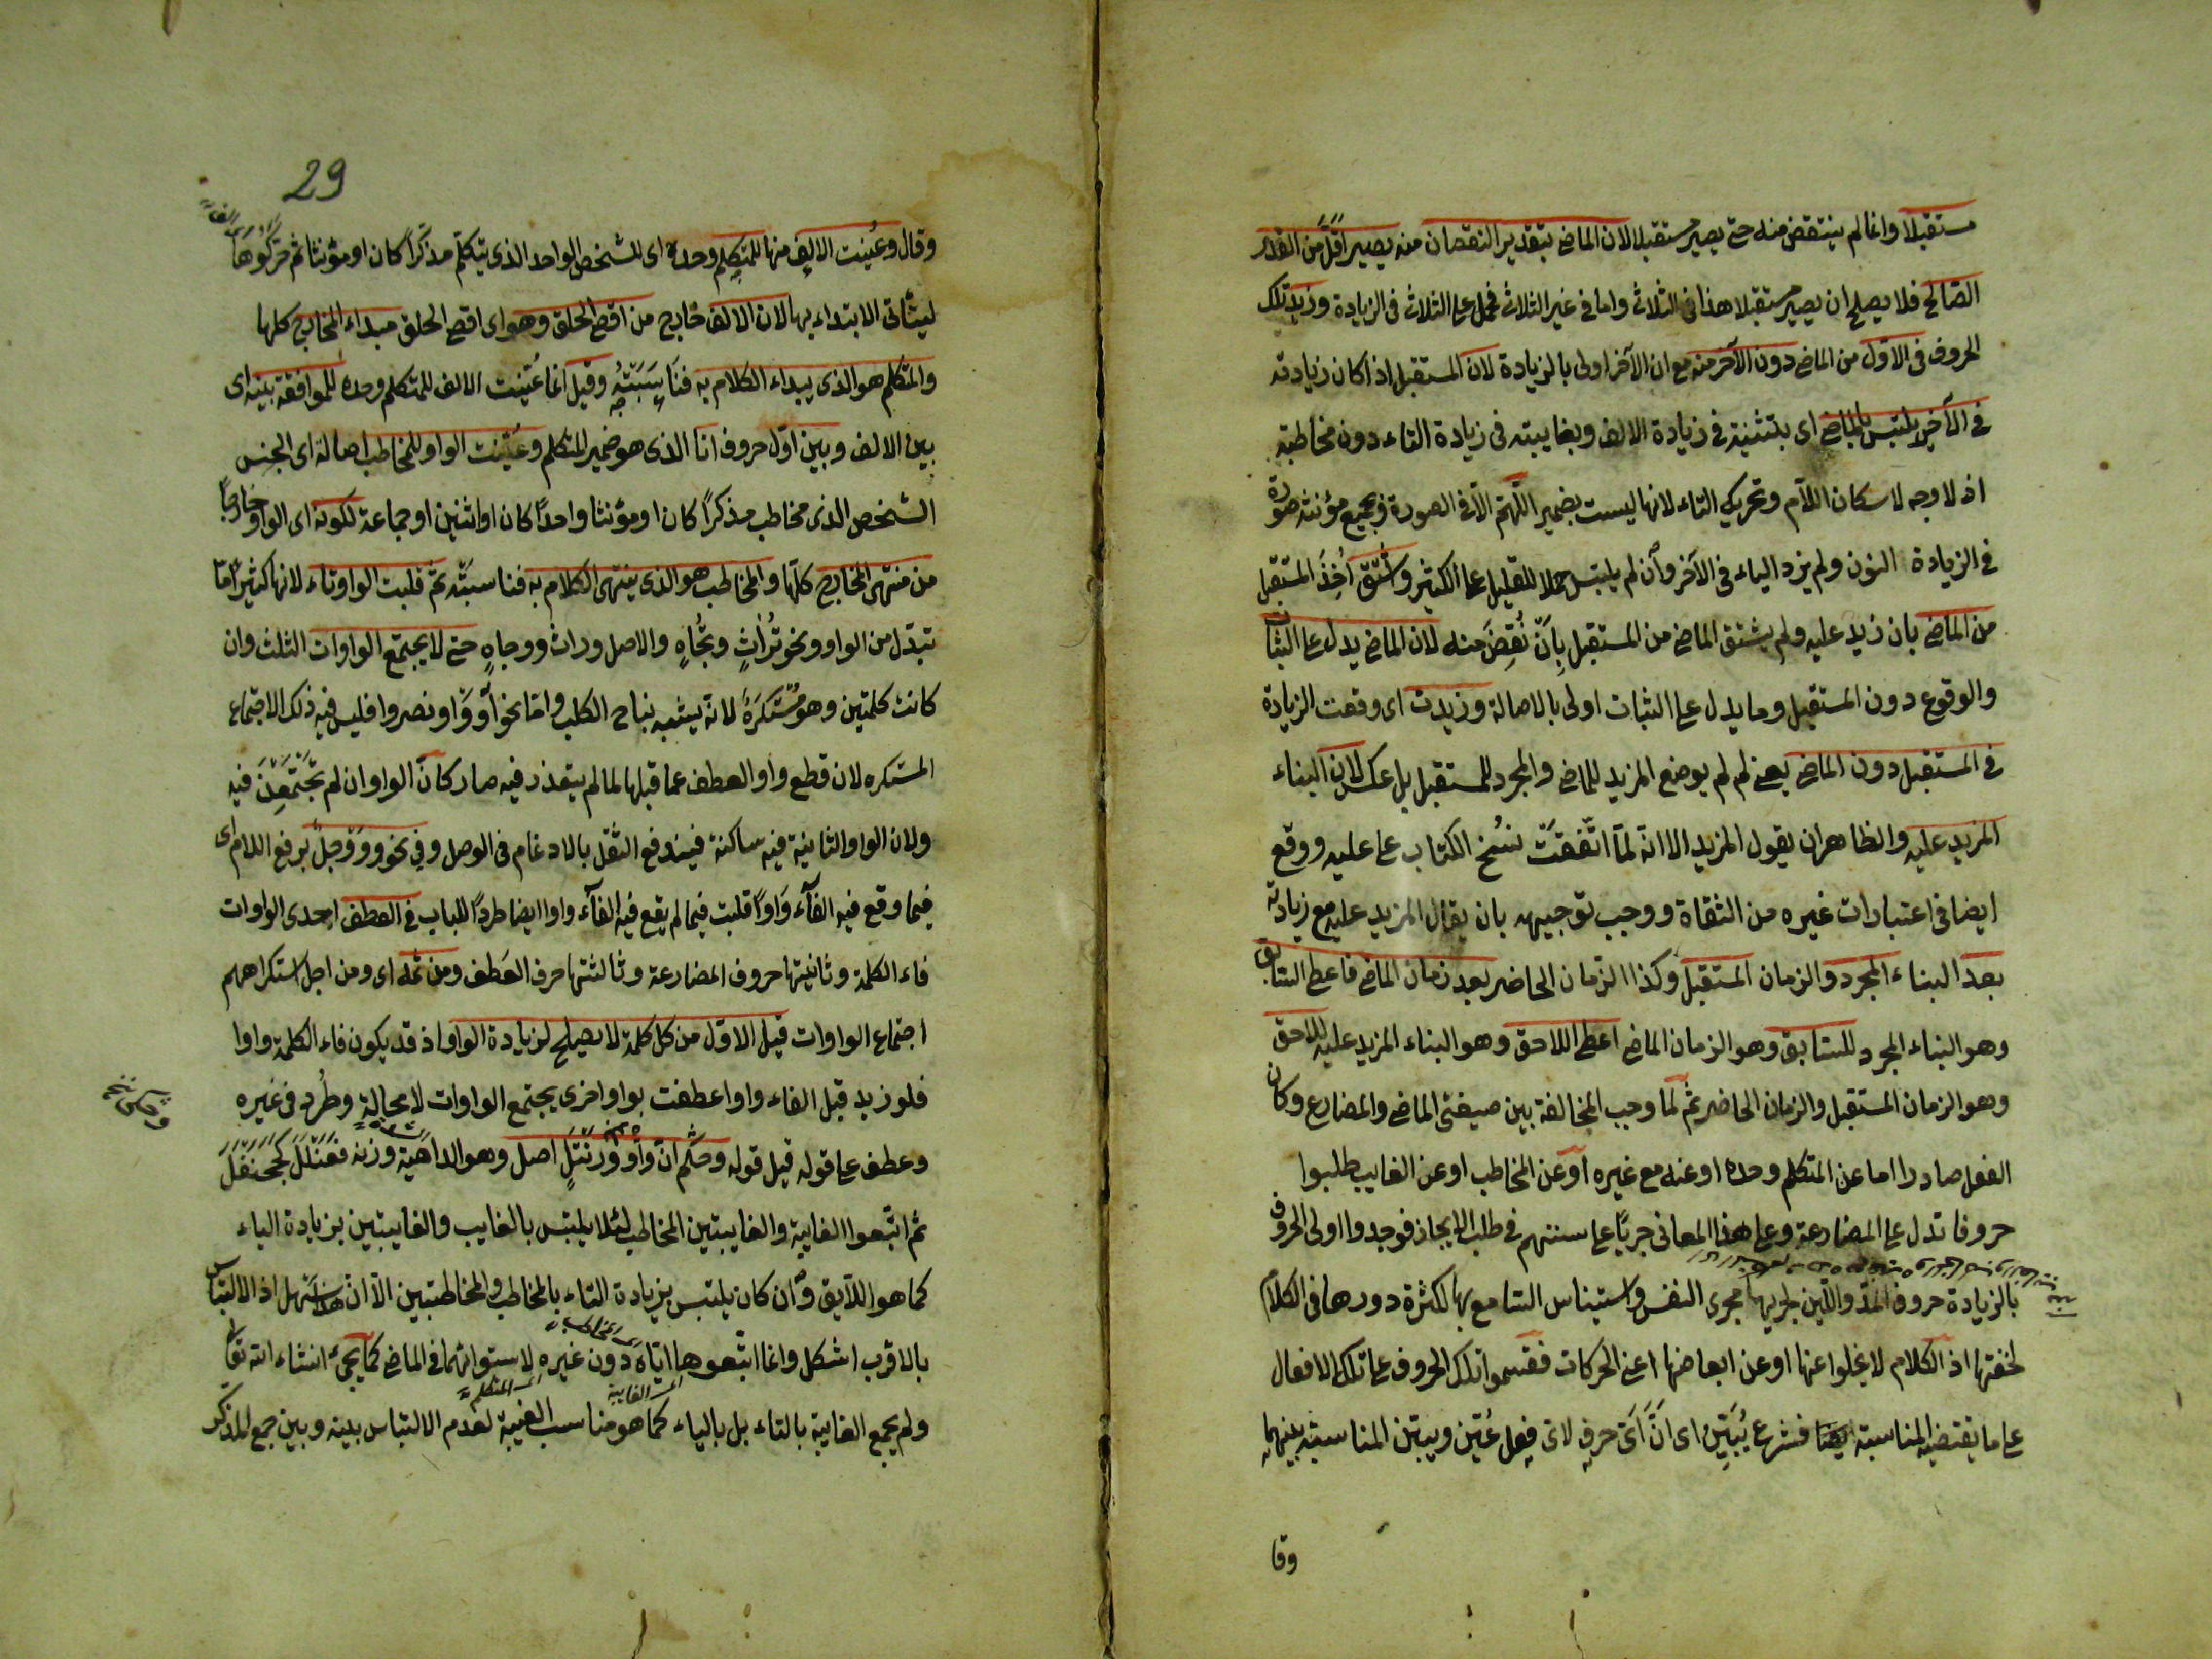 مستقبلا وانما لم ينتقض منه حتى يصير مستقبلا لان الماضى بتقدير النقصان منه يصير اقل من القدر
الصالح فلا يصلح ان يصير مستقبلا هذا فى الثلاثى واما فى غير الثلاثى فحمل على الثلاثى فى الزيادة وزيد تلك
الحروف فى الاول من الماضى دون الآخر منه مع ان الآخر اولى بالزيادة لان المستقبل اذا كان زيادته
فى الآخر يلتبس بالماضى اى بتثنيته فى زيادة الالف وبغايبته فى زيادة التاء دون مخاطبه
اذ لا وجه لاسكان اللام وتحريك التاء لانها ليست بضمير اللهم الا فى الصورة وبجمع مؤنثه صورة
فى الزيادة النون ولم يزد الياء فى الآخر وان لم يلتبس حملا للقليل على الكثير واشتق اخذ المستقبل
من الماضى بان زيد عليه ولم يشتق الماضى من المستقبل بان نقص منه لان الماضى يدل على الثبات
والوقوع دون المستقبل وما يدل على الثبات اولى بالاصالة وزيدت اى وقعت الزيادة
فى المستقبل دون الماضى يعنى لم لم يوضع المزيد للماضى والمجرد للمستقبل بل عكس لان البناء
المزيد عليه والظاهر ان يقول المزيد الا انه لما اتفقت نسخ الكتاب على عليه ووقع
ايضا فى اعتبارات غيره من الثقاة ووجب توجيهه بان يقال المزيد عليه مع زيادته
بعد البناء المجرد والزمان المستقبل وكذا الزمان الحاضر بعد زمان الماضى فاعطى السابق
وهو البناء المجرد للسابق وهو الزمان الماضى اعطى اللاحق وهو البناء المزيد عليه للاحق
وهو الزمان المستقبل والزمان الحاضر ثم لما وجب المخالفة بين صيغتى الماضى والمضارع وكان
الفعل صادرا اما عن المتكلم وحده او عنه مع غيره او عن المخاطب او عن الغايب طلبوا
حروفا تدل على المضارعة وعلى هذا المعانى جريا على سنتهم فى طلب الايجاز فوجدوا اولى الحروف
بالزيادة حروف المد واللين لجريها مجرى النفس واستيناس السامع بها لكثرة دورها فى الكلام
لخفتها اذ الكلام لا يخلوا عنها او عن ابعاضها اعنى الحركات فقسموا تلك الحروف على تلك الافعال
على ما يقتضيه المناسبة فشرع يبين اى ان اى حرف لاى فعل عين ويبين المناسبة بينهما
وقا
29
وقال وعينت الالف منها للمتكلم وحده اى للشخص الواحد الذى يتكلم مذكرا كان او مؤنثا ثم حركوها
ليتأتى الابتداء بها لان الالف خارج من اقصى الحلق وهو اى اقصى الحلق مبداء المخارج كلها
والمتكلم هو الذى يبداء الكلام به فناسبته وقيل انما عينت الالف للمتكلم وحده للموافقة بينه اى
بين الالف وبين اول حروف انا الذى هو ضمير المتكلم وعينت الواو للمخاطب اصالة اى الجنس
الشخص الذى مخاطب مذكرا كان او مؤنثا واحدا كان او اثنين او جماعة لكونه اى الواو خارجا
من منتهى المخارج كلها والمخاطب هو الذى ينتهى الكلام به فناسبته ثم قلبت الواو تاء لانها كثيرا ما
تبدل من الواو ونحو تراث وتجاه والاصل وراث ووجاه حتى لا يجتمع الواوات الثلث وان
كانت كلمتين وهو مستكره لانه يشبه نباح الكلب واما نحو آووا ونصروا فليس فيه ذلك الاجتماع
المستكره لان قطع واو العطف عما قبلها لما لم يتعذر فيه صار كأن الواو ان لم تجتمعن فيه
ولان الواو الثانية فيه ساكنة فيندفع الثقل بالادغام فى الوصل وفى نحو ووَوْجل برفع اللام اى
فيما وقع فيه الفآء واوا قلبت فيما لم يقع فيه الفآء واوا ايضا طردا للباب فى العطف احدى الواوات
فاء الكلمة وثانيتها حروف المضارعة وثالثتها حرف العطف ومن ثمه اى ومن اجل استكراههم
اجتماع الواوات قيل الاول من كل كلمة لا يصلح لزيادة الواو اذ قد يكون فاء الكلمة واوا
فلو زيد قبل الفاء واوا عطفت بواو اخرى يجتمع الواوات لا محالة وطرد فى غيره
وعطف على قوله قيل قوله وحكم ان واو ورنتل اصل وهو الداهية وزنه فعنلل كجحنفل
ثم اتبعوا الغايبة والغايبتين المخاطب لئلا يلتبس بالغايب والغايبين بزيادة الياء
كما هو اللآيق وان كان يلتبس بزيادة التاء بالمخاطب والمخاطبين الا ان هذا سهل اذ الالتباس
بالاقرب اشكل وانما اتبعوها اياه دون غيره لاستوائهما فى الماضى كما يجئ انشاء الله تعا
ولم يجمع الغايبة بالتاء بل بالياء كما هو مناسب الغيبة لعدم الالتباس بينه وبين جمع المذكر